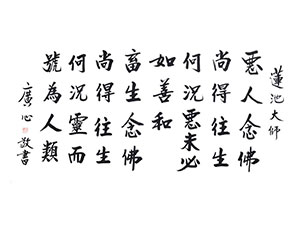 蓮池大師
惡人念佛
尚得往生
何況惡未必
如善和
畜生念佛
尚得往生
何況靈而
號為人類
廣心 敬書